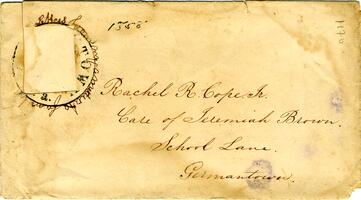 1358
TOW
a.
Rachel R. Cope Jr.
Care of Jeremiah Brown.
School Lane.
Germantown.